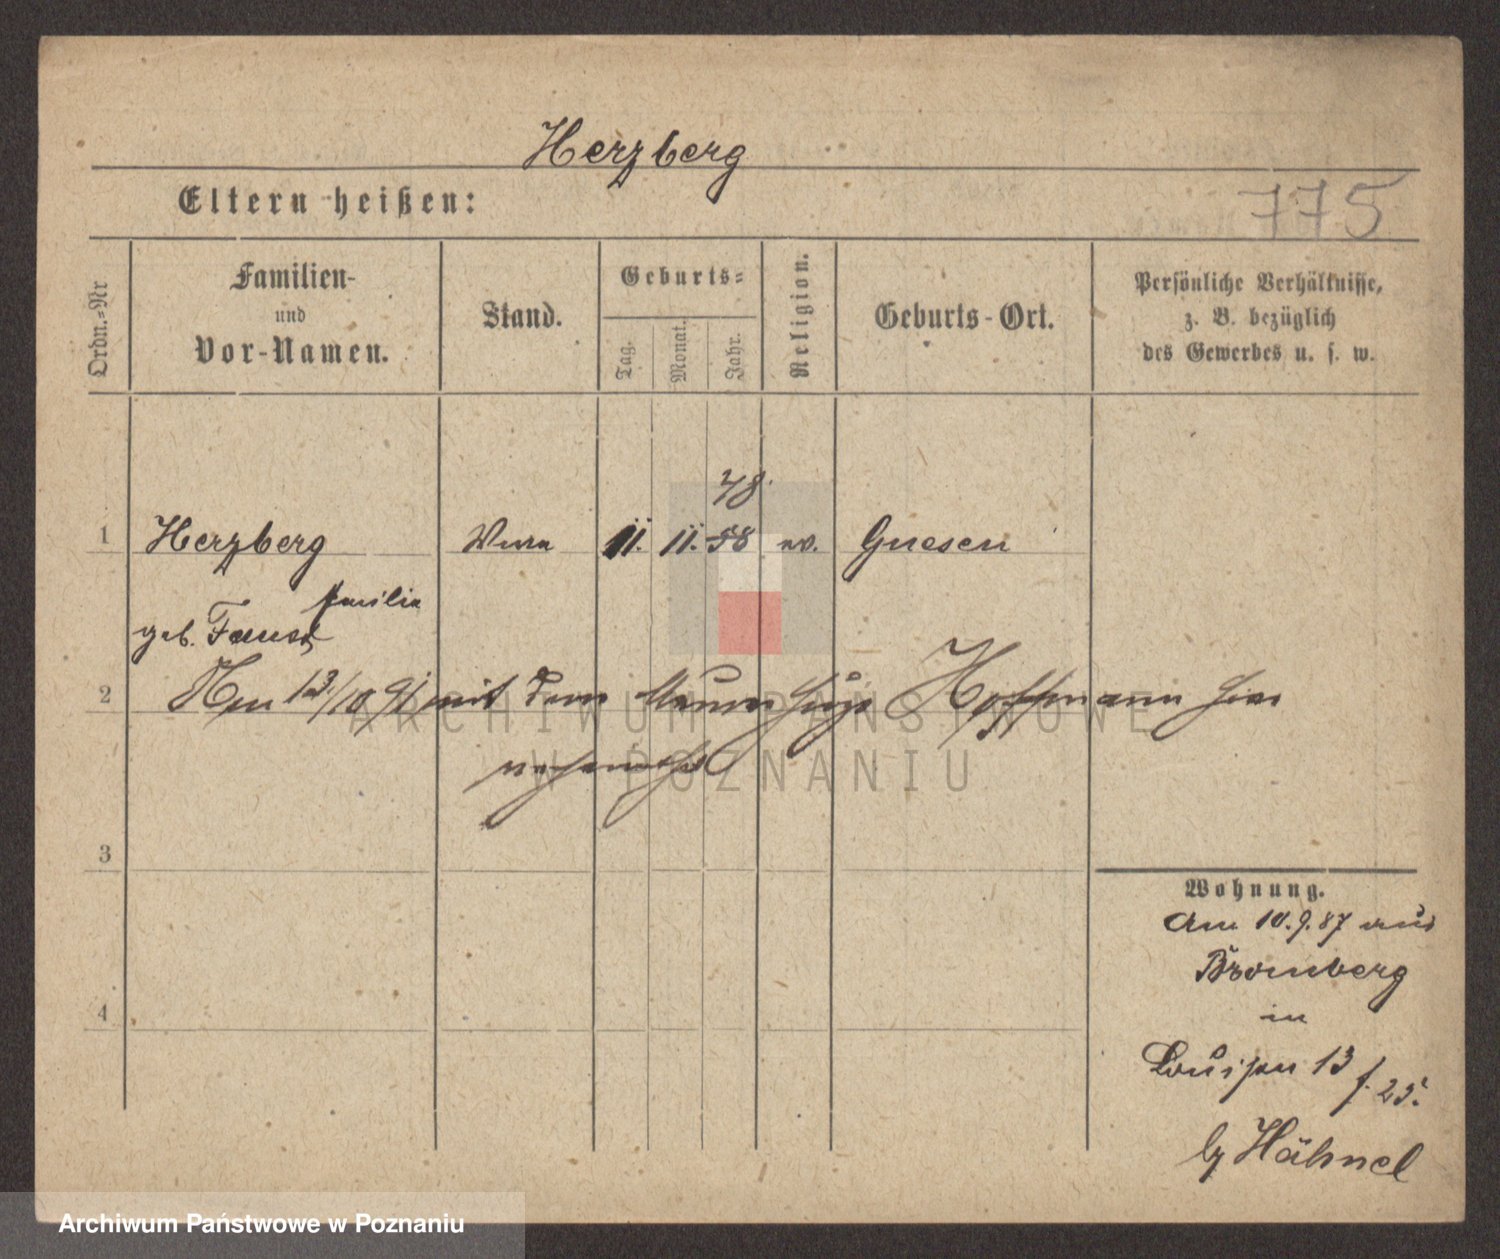 Herzberg
Eltern heißen:
775
Ordn.-Nr
Familien-
und
Vor-Namen.
Stand.
Geburts-
Tag.
Monat.
Jahr.
Religion.
Geburts-Ort.
Persönliche Verhältnisse,
z. B. bezüglich
des Gewerbes u. s. w.
48.
1 Herzberg Wwe 11. 11. 58 ev. Gnesen
Emilie
geb. Faust
2 13./10 91 mit dem Maurer Hugo Hoffmann hier
verheirathet
ARCHIWUM PAŃSTWOWE
W POZNANIU
3
Wohnung.
Am 10.9.87 aus
Bromberg
in
4
Louisen 13 f. 25.
by Hähnel
Archiwum Państwowe w Poznaniu